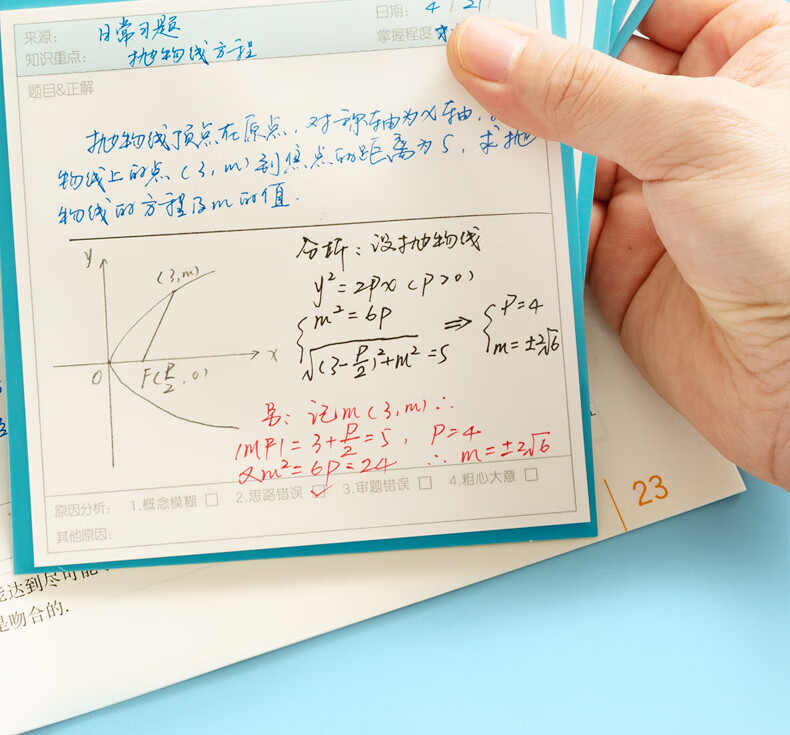 来源： 日常习题
日期： 4 / 2 /
知识重点： 抛物线方程
掌握程度
题目&正解
抛物线顶点在原点，对称轴为x轴，
物线上的点(3,m)到焦点的距离为5，求抛
物线的方程及m的值.
y
(3,m)
O
F(P/2,0)
x
分析：设抛物线
y²=2px(p>0)
{m²=6p
√((3-P/2)²+m²)=5
⇒ {P=4
m=±2√6
另：记m(3,m)∴
|MF|=3+P/2=5, P=4
又m²=6p=24 ∴m=±2√6
原因分析： 1.概念模糊 □ 2.思路错误 ☑ 3.审题错误 □ 4.粗心大意 □
其他原因：
23
达到尽可能
是吻合的.